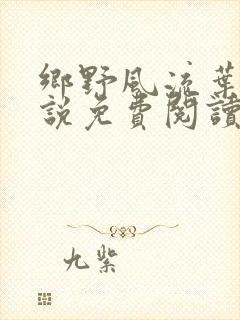 鄉野風流葉
説免費閱讀
九紫